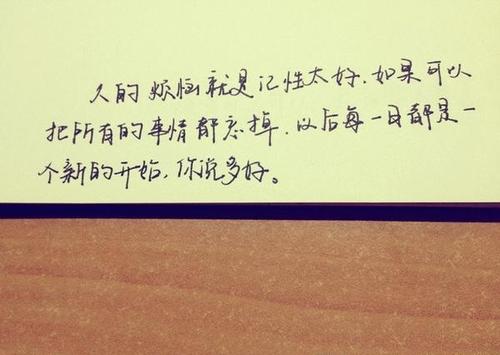 人的烦恼就是记性太好.如果可以
把所有的事情都忘掉.以后每一日都是一
个新的开始.你说多好。